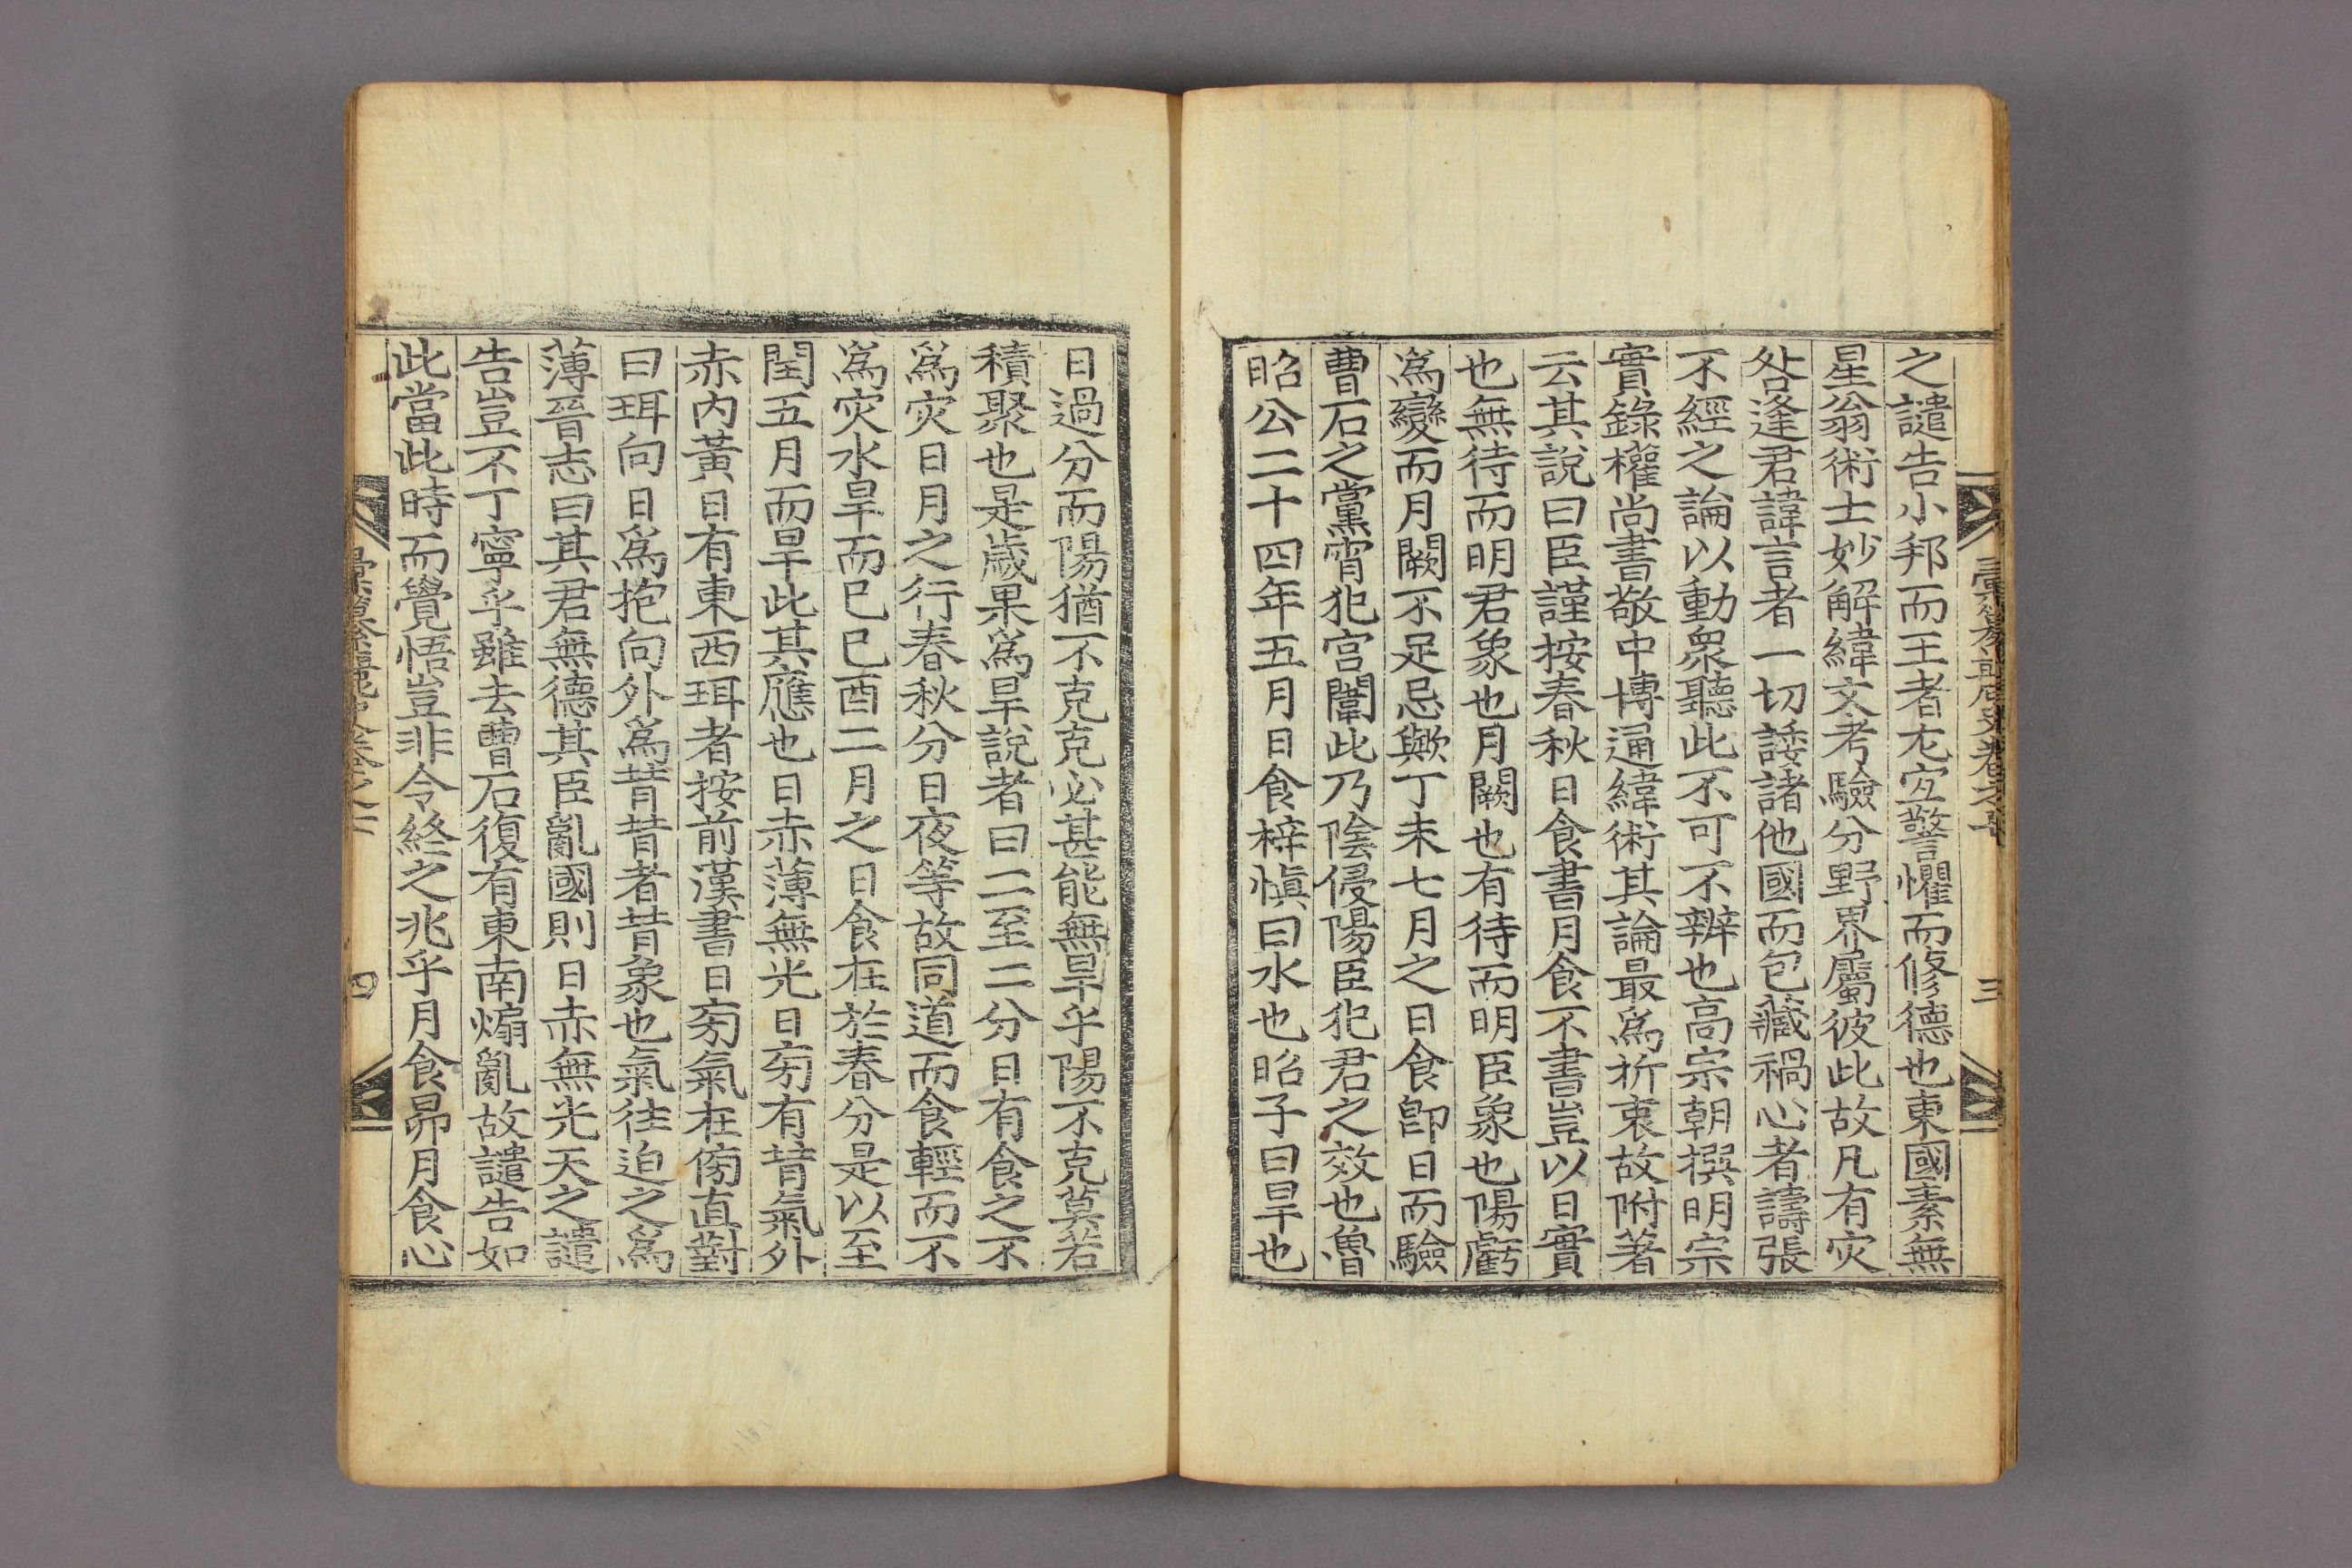 之譴告小邦而王者尤宜警懼而修德也東國素無
星翁術士妙解緯文考驗分野界屬彼此故凡有灾
咎逢君諱言者一切諉諸他國而包藏禍心者譸張
不經之論以動衆聽此不可不辨也高宗朝撰明宗
實錄權尚書敬中博通緯術其論最爲折衷故附著
云其說曰臣謹按春秋日食書月食不書豈以日實
也無待而明君象也月闕也有待而明臣象也陽虧
爲變而月闕不足忌歟丁未七月之日食卽日而驗
曹石之黨宵犯宮闈此乃陰侵陽臣犯君之效也魯
昭公二十四年五月日食梓愼曰水也昭子曰旱也
三
日過分而陽猶不克克必甚能無旱乎陽不克莫若
積聚也是歲果爲旱說者曰二至二分日有食之不
爲灾日月之行春秋分日夜等故同道而食輕而不
爲灾水旱而已己酉二月之日食在於春分是以至
閏五月而旱此其應也日赤薄無光日旁有背氣外
赤內黃日有東西珥者按前漢書日旁氣在傍直對
曰珥向日爲抱向外爲背背者背象也氣往迫之爲
薄晉志曰其君無德其臣亂國則日赤無光天之譴
告豈不丁寧乎雖去曹石復有東南煽亂故譴告如
此當此時而覺悟豈非令終之兆乎月食昴月食心
四